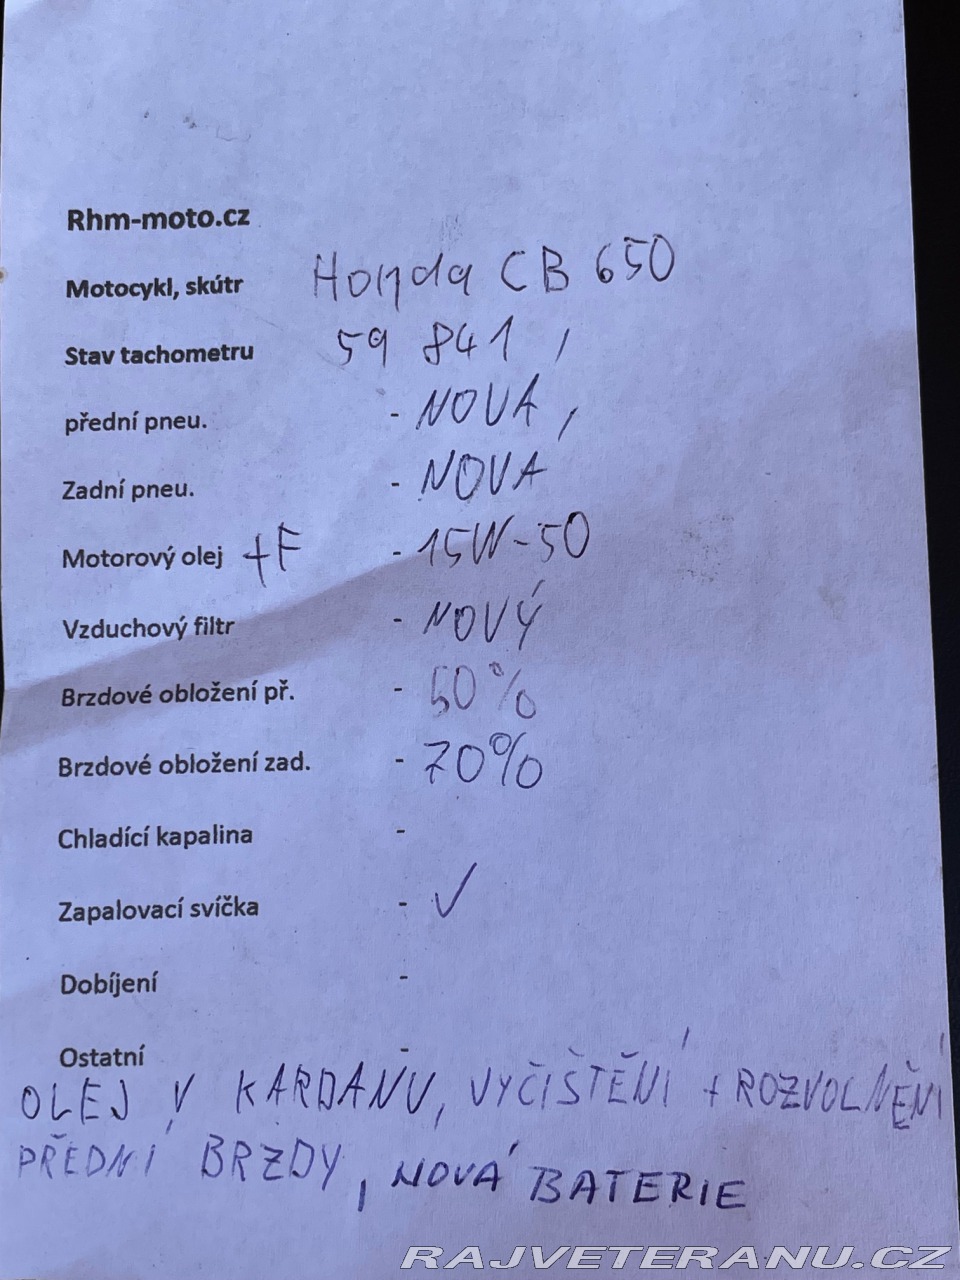 Rhm-moto.cz
Motocykl, skútr Honda CB 650
Stav tachometru 59 841,
přední pneu. - NOVA,
Zadní pneu. - NOVA
Motorový olej +F - 15W-50
Vzduchový filtr - NOVÝ
Brzdové obložení př. - 50%
Brzdové obložení zad. - 70%
Chladící kapalina -
Zapalovací svíčka - ✓
Dobíjení -
Ostatní -
OLEJ V KARDANU, VYČIŠTĚNÍ + ROZVOLNĚNÍ
PŘEDNÍ BRZDY, NOVÁ BATERIE
RAJVETERANU.CZ